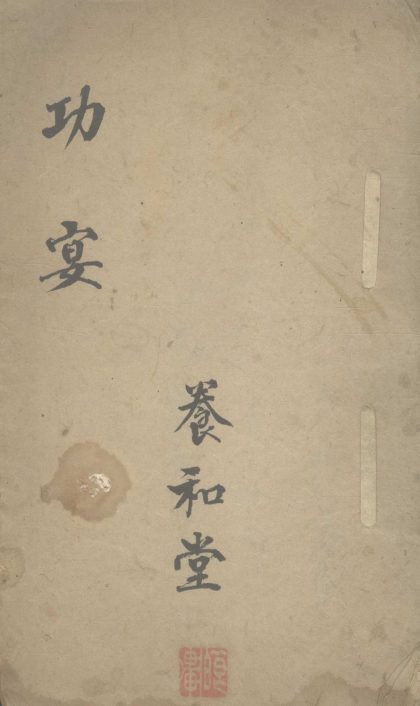 養和堂
功宴